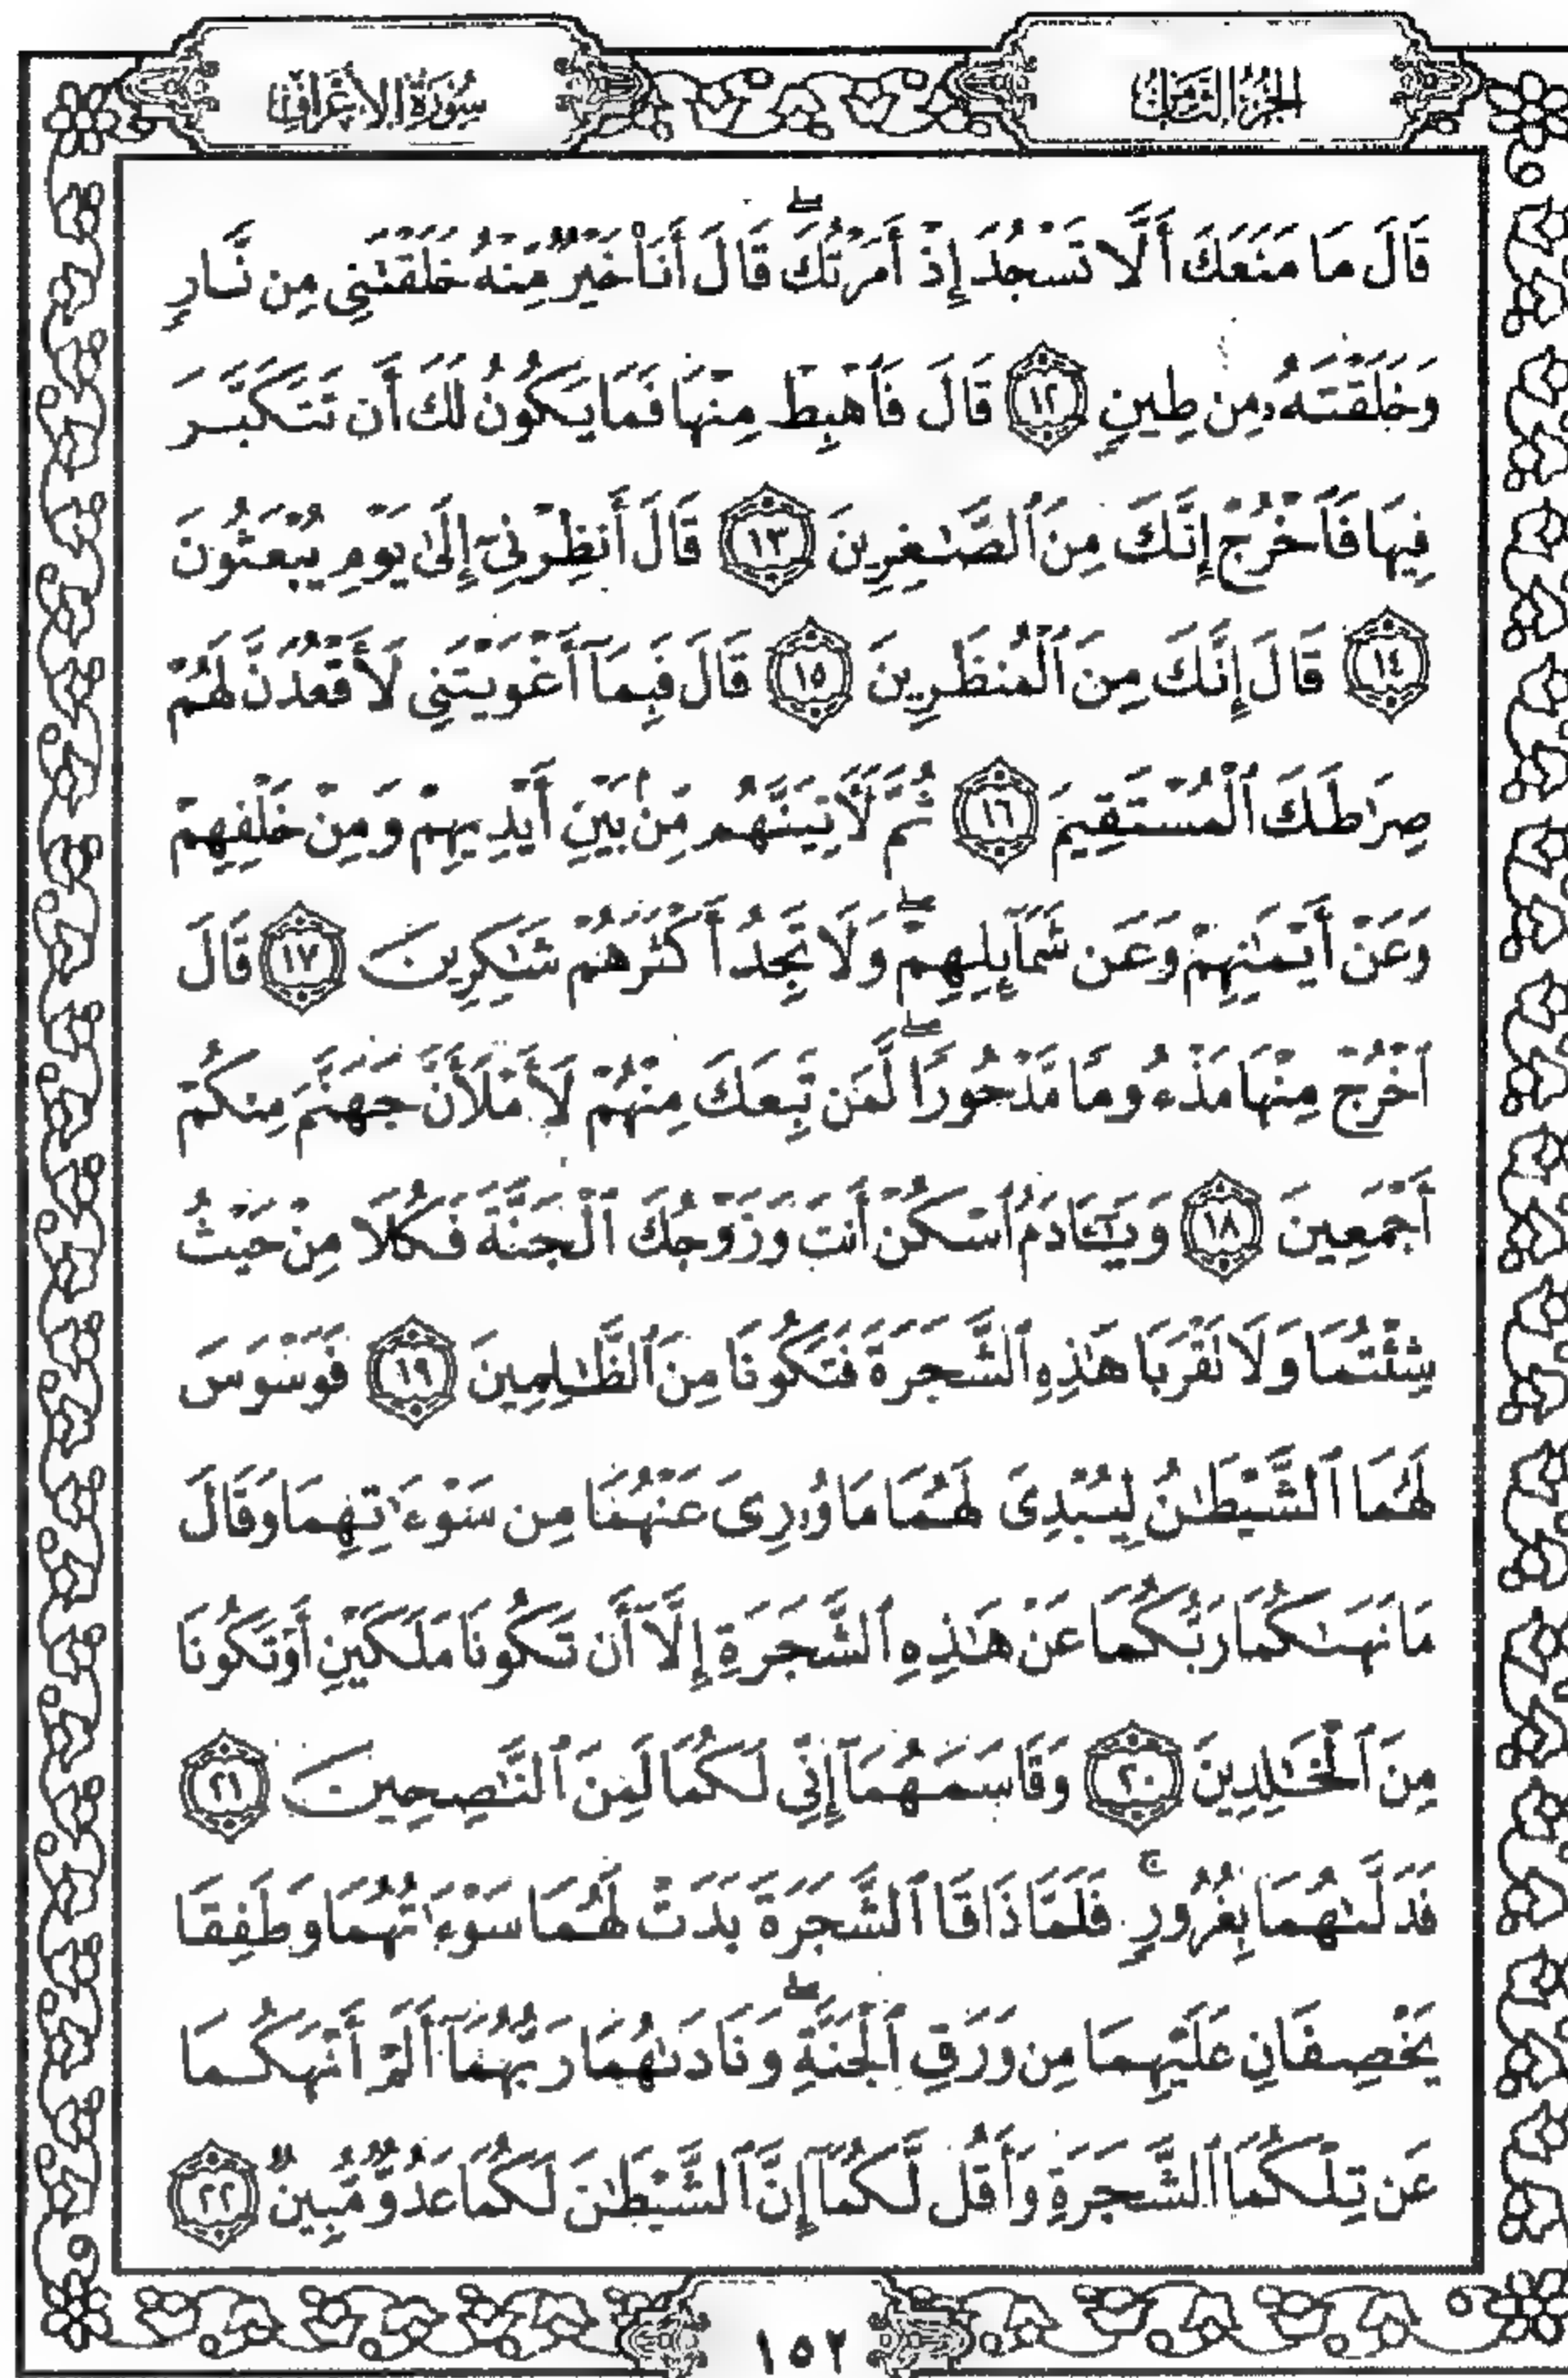 الجزء الثامن
سورة الأعراف
قَالَ مَا مَنَعَكَ أَلَّا تَسْجُدَ إِذْ أَمَرْتُكَ ۖ قَالَ أَنَا۠ خَيْرٌ مِّنْهُ خَلَقْتَنِي مِن نَّارٍ
وَخَلَقْتَهُۥ مِن طِينٍ ١٢ قَالَ فَٱهْبِطْ مِنْهَا فَمَا يَكُونُ لَكَ أَن تَتَكَبَّرَ
فِيهَا فَٱخْرُجْ إِنَّكَ مِنَ ٱلصَّٰغِرِينَ ١٣ قَالَ أَنظِرْنِىٓ إِلَىٰ يَوْمِ يُبْعَثُونَ
١٤ قَالَ إِنَّكَ مِنَ ٱلْمُنظَرِينَ ١٥ قَالَ فَبِمَآ أَغْوَيْتَنِى لَأَقْعُدَنَّ لَهُمْ
صِرَٰطَكَ ٱلْمُسْتَقِيمَ ١٦ ثُمَّ لَءَاتِيَنَّهُم مِّنۢ بَيْنِ أَيْدِيهِمْ وَمِنْ خَلْفِهِمْ
وَعَنْ أَيْمَٰنِهِمْ وَعَن شَمَآئِلِهِمْ ۖ وَلَا تَجِدُ أَكْثَرَهُمْ شَٰكِرِينَ ١٧ قَالَ
ٱخْرُجْ مِنْهَا مَذْءُومًا مَّدْحُورًا ۖ لَّمَن تَبِعَكَ مِنْهُمْ لَأَمْلَأَنَّ جَهَنَّمَ مِنكُمْ
أَجْمَعِينَ ١٨ وَيَٰٓـَٔادَمُ ٱسْكُنْ أَنتَ وَزَوْجُكَ ٱلْجَنَّةَ فَكُلَا مِنْ حَيْثُ
شِئْتُمَا وَلَا تَقْرَبَا هَٰذِهِ ٱلشَّجَرَةَ فَتَكُونَا مِنَ ٱلظَّٰلِمِينَ ١٩ فَوَسْوَسَ
لَهُمَا ٱلشَّيْطَٰنُ لِيُبْدِىَ لَهُمَا مَا وُۥرِىَ عَنْهُمَا مِن سَوْءَٰتِهِمَا وَقَالَ
مَا نَهَىٰكُمَا رَبُّكُمَا عَنْ هَٰذِهِ ٱلشَّجَرَةِ إِلَّآ أَن تَكُونَا مَلَكَيْنِ أَوْ تَكُونَا
مِنَ ٱلْخَٰلِدِينَ ٢٠ وَقَاسَمَهُمَآ إِنِّى لَكُمَا لَمِنَ ٱلنَّٰصِحِينَ ٢١
فَدَلَّىٰهُمَا بِغُرُورٍ ۚ فَلَمَّا ذَاقَا ٱلشَّجَرَةَ بَدَتْ لَهُمَا سَوْءَٰتُهُمَا وَطَفِقَا
يَخْصِفَانِ عَلَيْهِمَا مِن وَرَقِ ٱلْجَنَّةِ ۖ وَنَادَىٰهُمَا رَبُّهُمَآ أَلَمْ أَنْهَكُمَا
عَن تِلْكُمَا ٱلشَّجَرَةِ وَأَقُل لَّكُمَآ إِنَّ ٱلشَّيْطَٰنَ لَكُمَا عَدُوٌّ مُّبِينٌ ٢٢
١٥٢